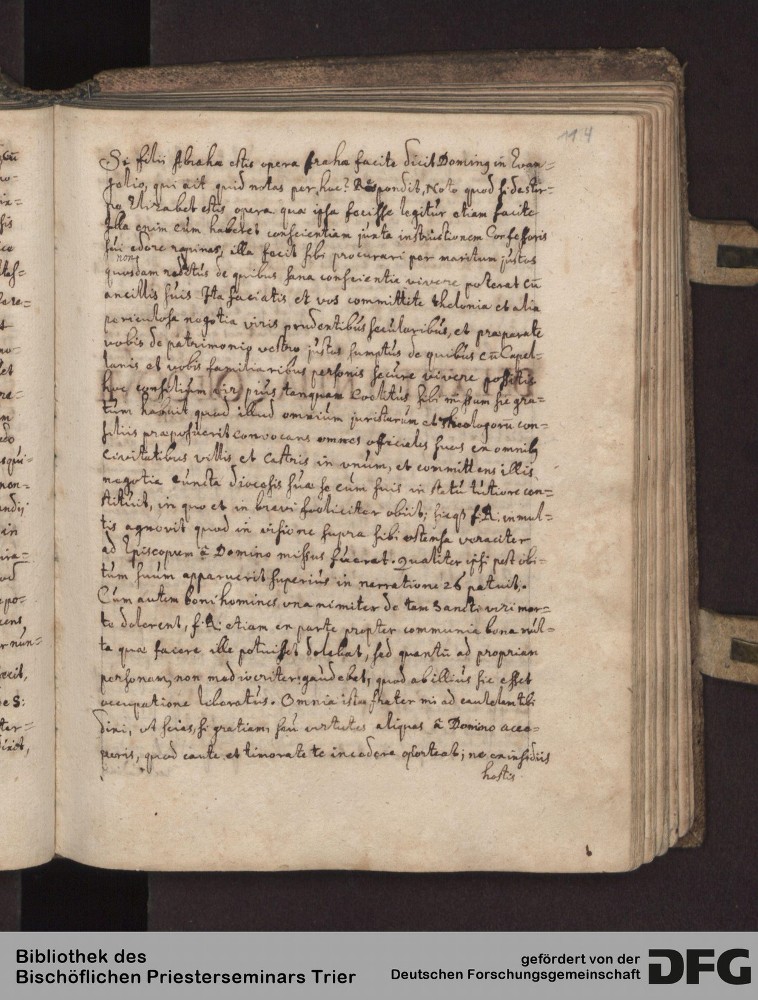 114
Si filii Abrahæ estis opera Abrahæ facite dicit Dominus in Evan-
gelio, qui ait quid notas per hoc? Respondit, Noto quod si
Elizabet estis, opera quæ ipsa fecisse legitur etiam facite
Illa enim cum haberet conscientiam juxta instructionem Confessoris
sui edere rapinas, illa fecit sibi procurari per maritum justos
non
quosdam reditus de quibus sana conscientia vivere poterat cū
ancillis suis. Ita faciatis et vos committite thelonia et alia
periculosa negotia viris prudentibus secularibus, et præparate
vobis de patrimonio vestro justos sumptus de quibus cū Capel-
lanis et vobis familiaribus personis secure vivere possitis
hoc consilium vir pius tanquam Coelitus sibi missum sic gra-
tum habuit quod illud omnium juristarum et Theologorū con-
siliis præposuerit convocans omnes officiales suos ex omnibus
Civitatibus villis et Castris in vnum, et committens illis
negotia cuncta diocesis suæ se cum suis in statū tutiore con-
stituit, in quo et in brevi foeliciter obiit; sicq3 f. R. in mul-
tis agnovit quod in visione supra sibi ostensa veraciter
ad Episcopum â Domino missus fuerat. Qualiter ipsi post obi-
tum suum apparuerit superius in narratione 26 patuit.
Cum autem boni homines vnanimiter de tam Sancti viri mor-
te dolerent, f. R. etiam ex parte propter communia bona mul-
ta quæ facere ille potuisset dolebat, sed quantū ad propriam
personam, non mediocriter gaudebat, quod ab illius sic esset
occupatione liberatus. Omnia ista frater mi ad cautelam tibi
dixi, vt scias, si gratiam, seu virtutes aliquas â Domino acce-
peris, quod caute et timorate te incedere oporteat; ne ex insidiis
hostis
Bibliothek des
Bischöflichen Priesterseminars Trier
gefördert von der
Deutschen Forschungsgemeinschaft
DFG